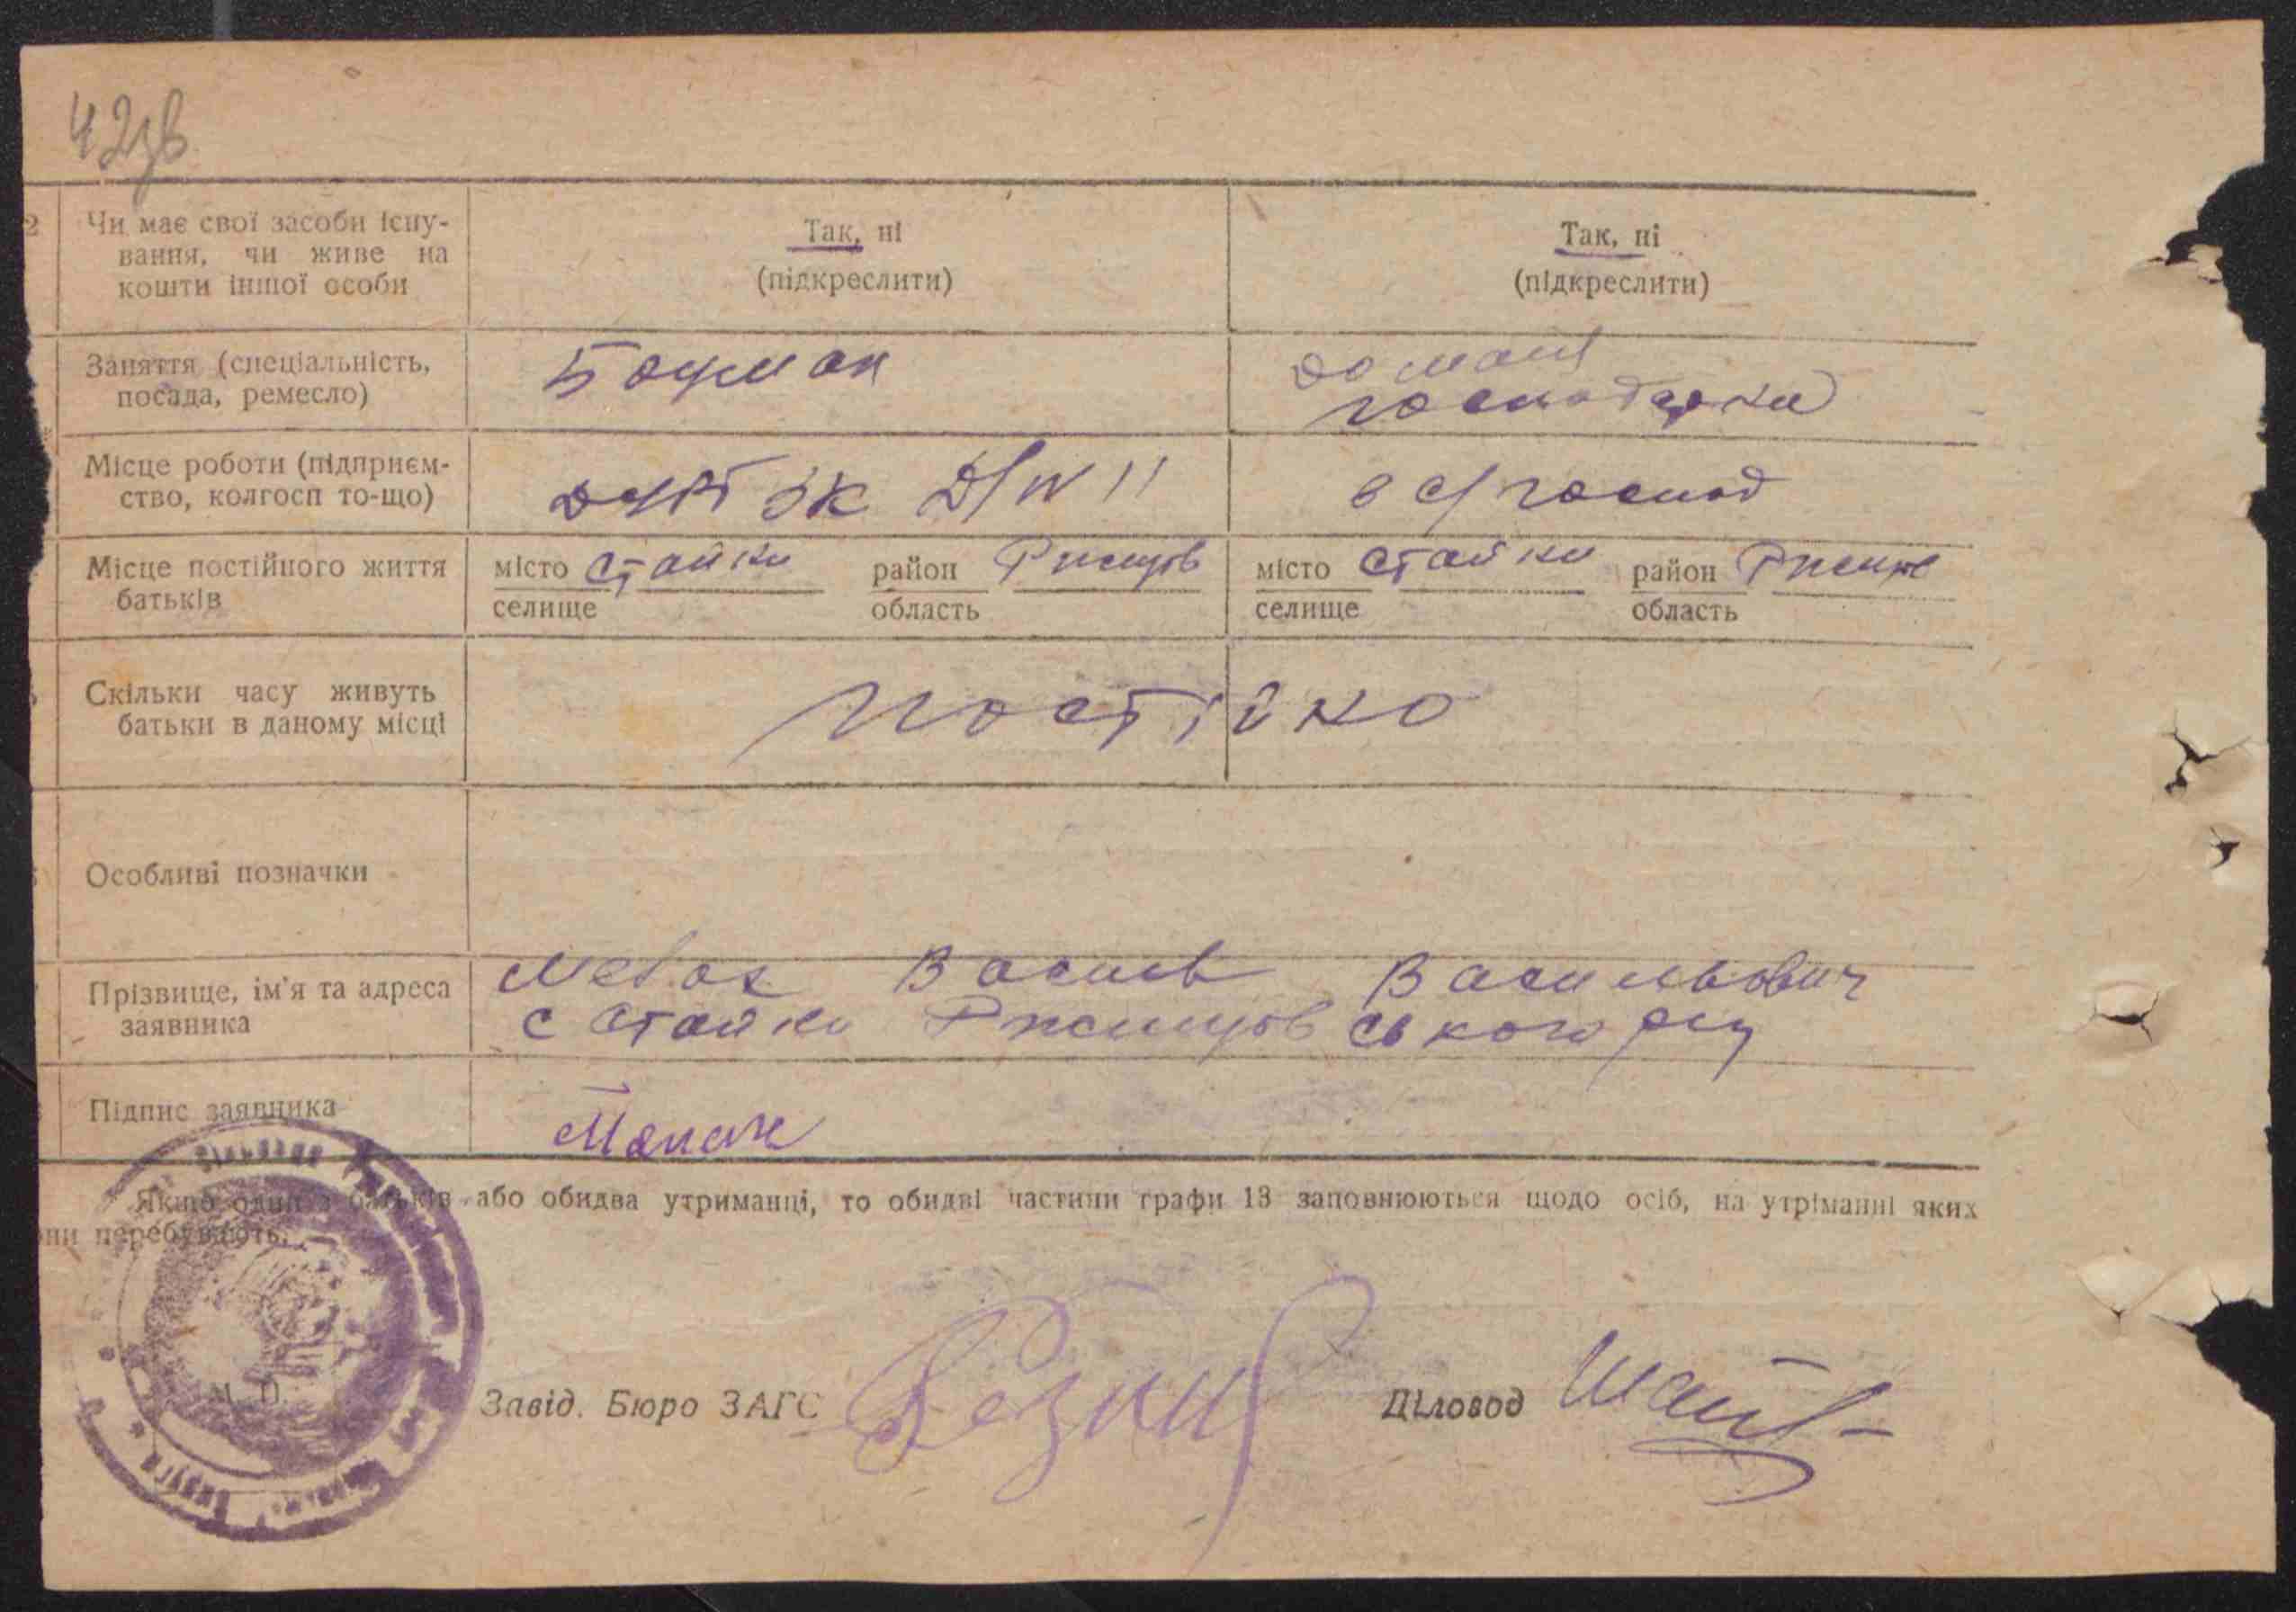 42зв
2 Чи має свої засоби існу-
вання, чи живе на
кошти іншої особи
Так, ні
(підкреслити)
Так, ні
(підкреслити)
Заняття (спеціальність,
посада, ремесло)
Боцман
домаш
господарки
Місце роботи (підприєм-
ство, колгосп то-що)
в с/господ
Місце постійного життя
батьків
місто Стайки район Ржищів
селище область
місто Стайки район Ржищів
селище область
Скільки часу живуть
батьки в даному місці
постійно
Особливі позначки
Прізвище, ім'я та адреса
заявника
Василь Васильович
с Стайки Ржищівського р-у
Підпис заявника
Якщо один з батьків або обидва утриманці, то обидві частини графи 13 заповнюються щодо осіб, на утріманні яких
они перебувають.
М. П.
Завід. Бюро ЗАГС
Діловод